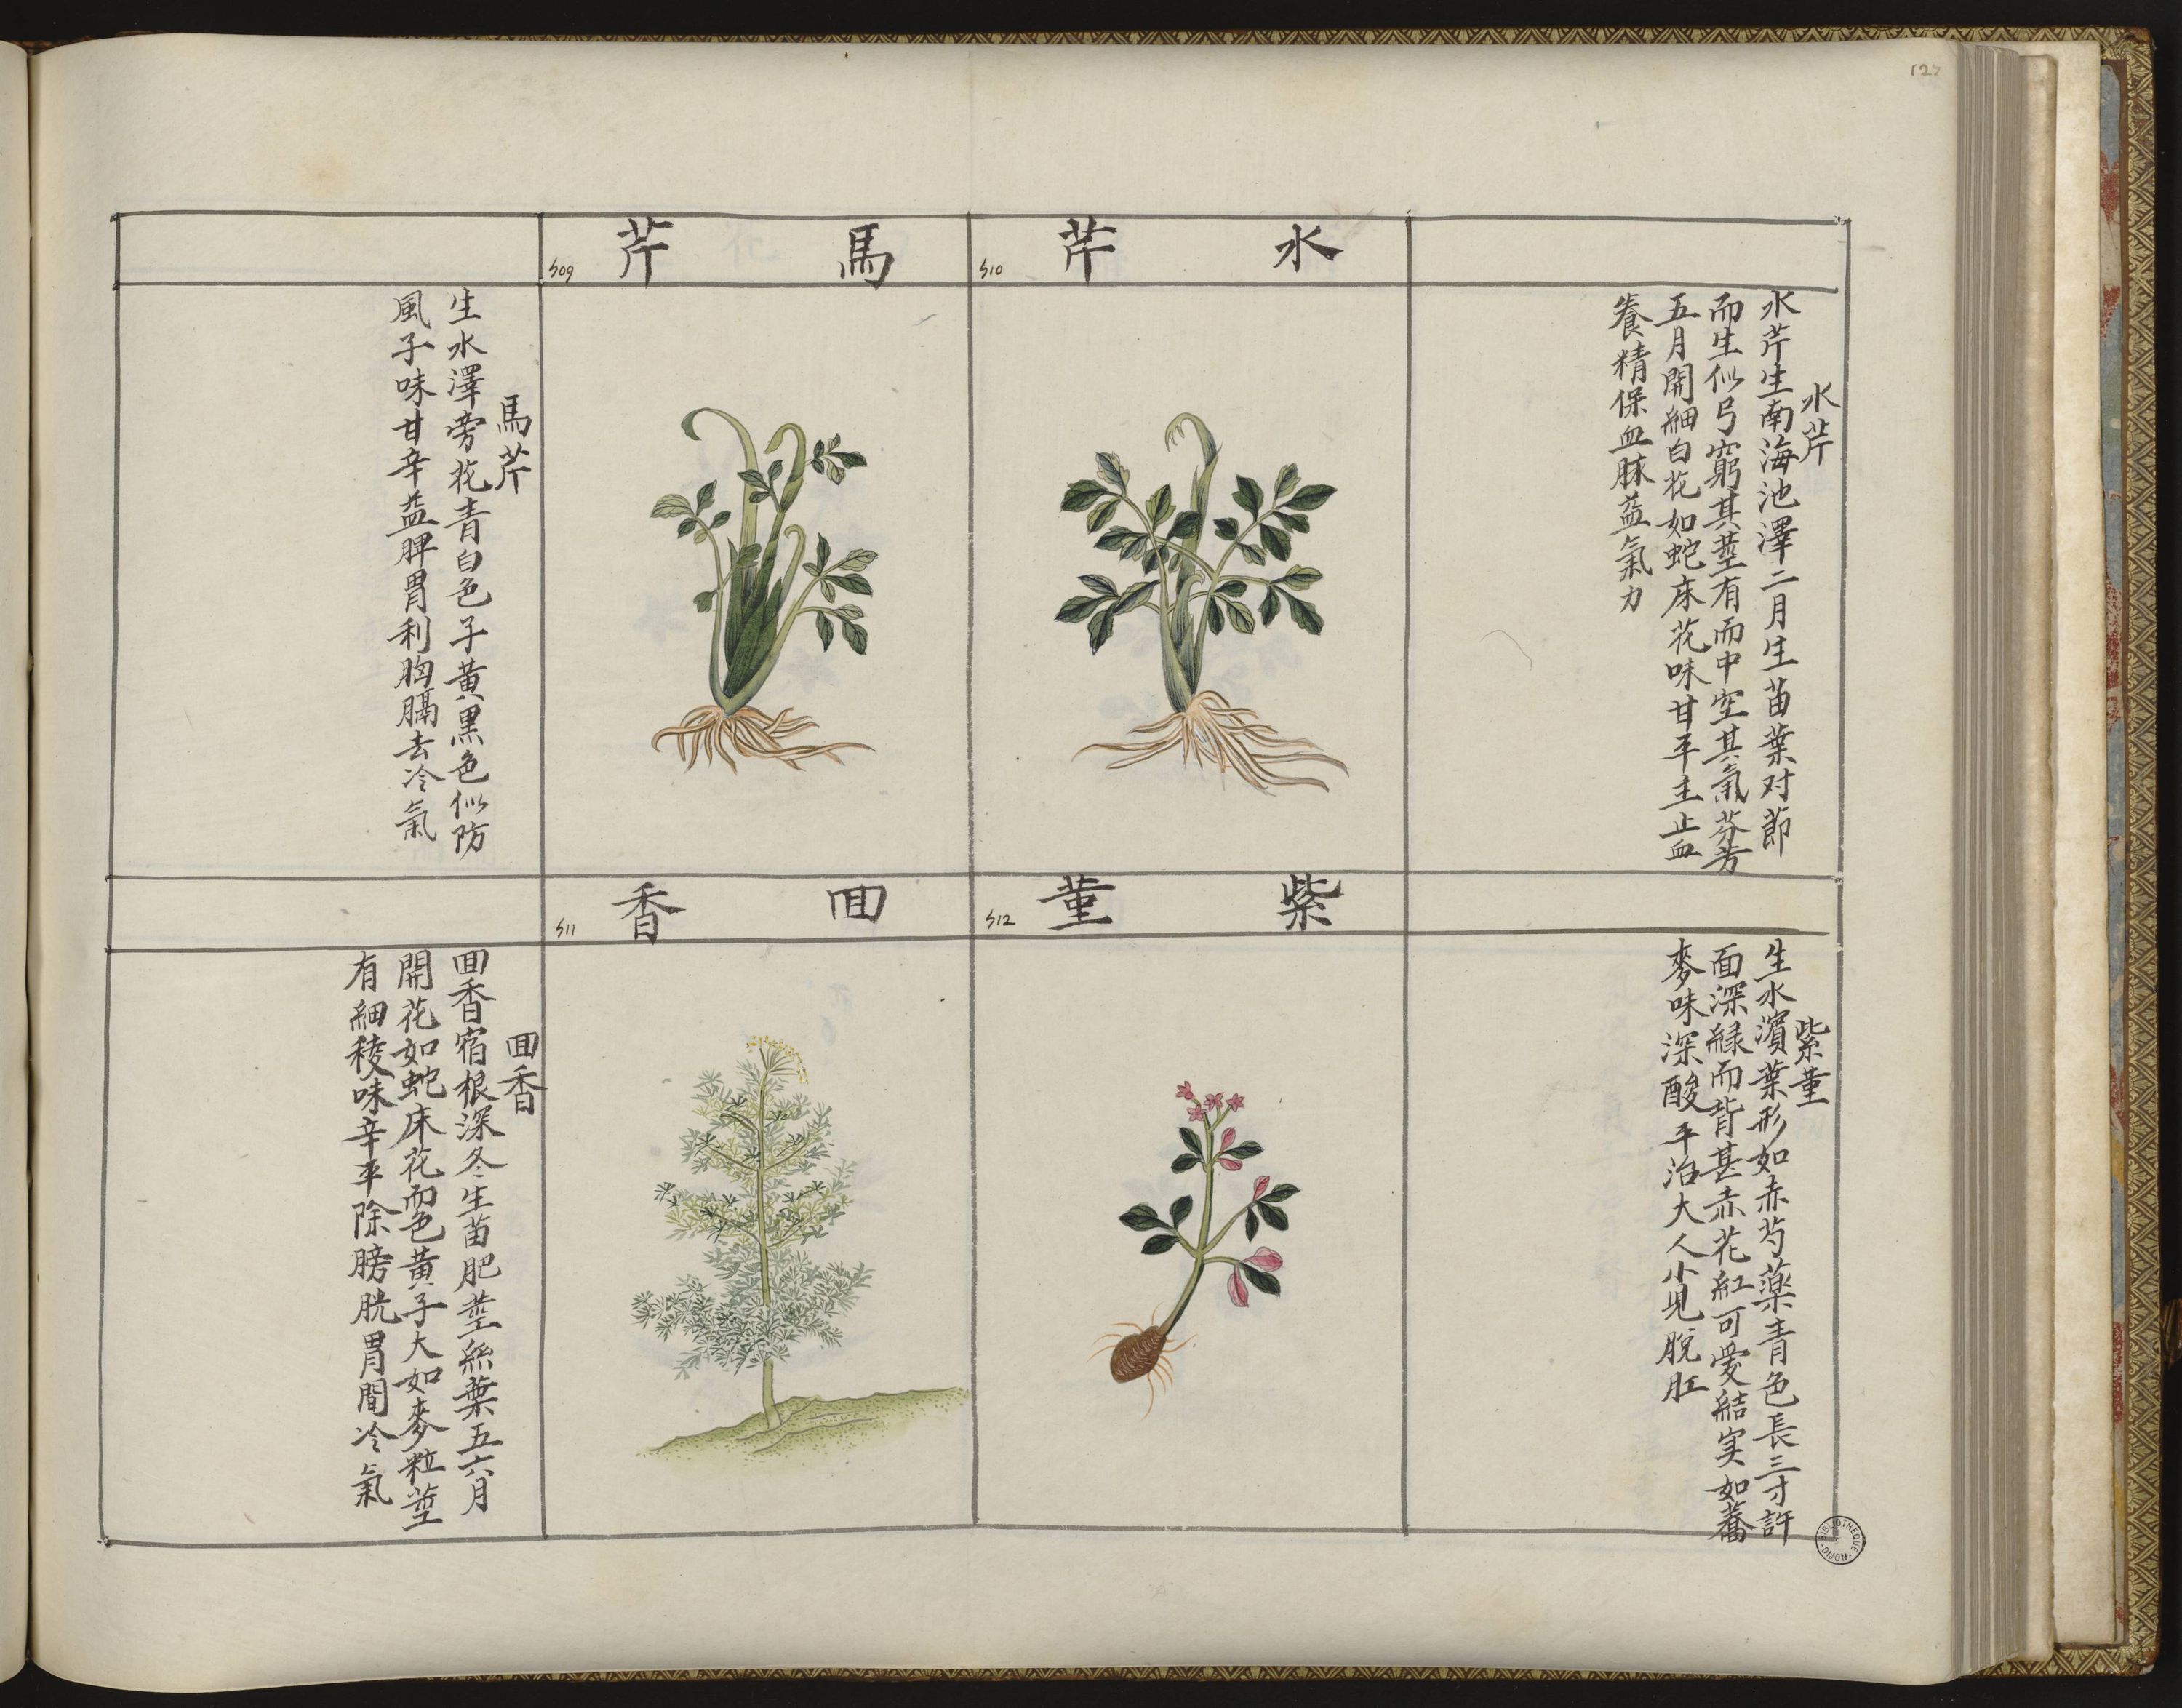 127
水芹
水芹
水芹生南海池澤二月生苗葉对莭
而生似弓窮其莖有而中空其氣芬芳
五月開細白花如蛇床花味甘平主止血
養精保血脉益氣力
510
馬芹
509
馬芹
生水澤旁花青白色子黃黑色似防
風子味甘辛益脾胃利胸膈去冷氣
紫菫
紫菫
生水濱葉形如赤芍藥青色長三寸許
面深緑而背甚赤花紅可愛結実如蕎
麥味深酸平治大人小児脫肛
512
囬香
511
囬香
囬香宿根深冬生苗肥莖絲葉五六月
開花如蛇床花而色黃子大如麥粒莖
有細稜味辛平除膀胱胃間冷氣
BIBLIOTHEQUE DIJON